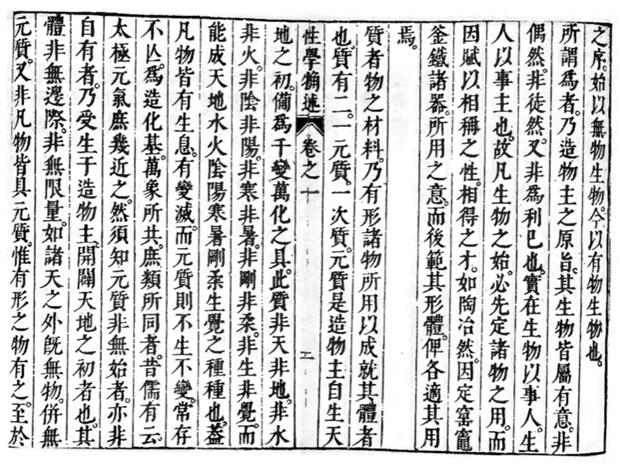 之序。始以無物生物。今以有物生物也。
所謂爲者。乃造物主之原旨。其生物皆屬有意。非
偶然。非徒然。又非爲利己也。實在生物以事人。生
人以事主也。故凡生物之始。必先定諸物之用。而
因賦以相稱之性。相得之才。如陶冶然。因定窑竈
釜鐵諸器。所用之意。而後範其形體。俾各適其用
焉。
質者物之材料。乃有形諸物所用以成就其體者
也。質有二。一元質。一次質。元質是造物主自生天
性學觕述 卷之一 二
地之初。備爲千變萬化之具。此質非天非地。非水
非火。非陰非陽。非寒非暑。非剛非柔。非生非覺。而
能成天地水火陰陽寒暑剛柔生覺之種種也。蓋
凡物皆有生息。有變滅。而元質則不生不變。常存
不亾。爲造化基。萬象所共。庶類所同者。昔儒有云。
太極元氣庶幾近之。然須知元質非無始者。亦非
自有者。乃受生于造物主。開闢天地之初者也。其
體非無邊際。非無限量。如諸天之外旣無物。倂無
元質。又非凡物皆具元質。惟有形之物有之。至於